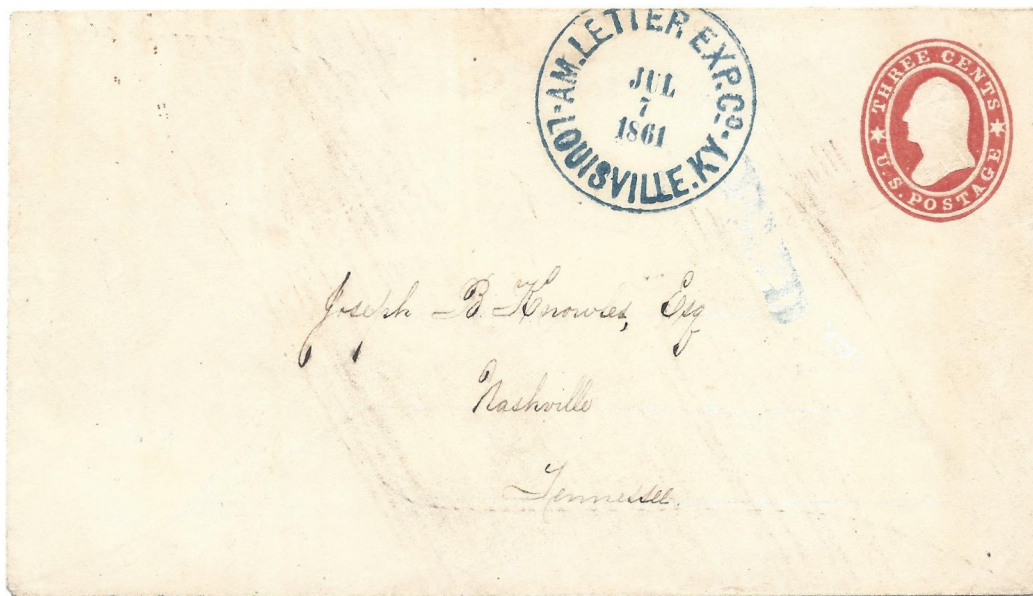 AM. LETTER EXP. Cº
JUL
7
1861
LOUISVILLE. KY
THREE CENTS
U.S. POSTAGE
Joseph B. Knowles, Esq
Nashville
Tennessee.